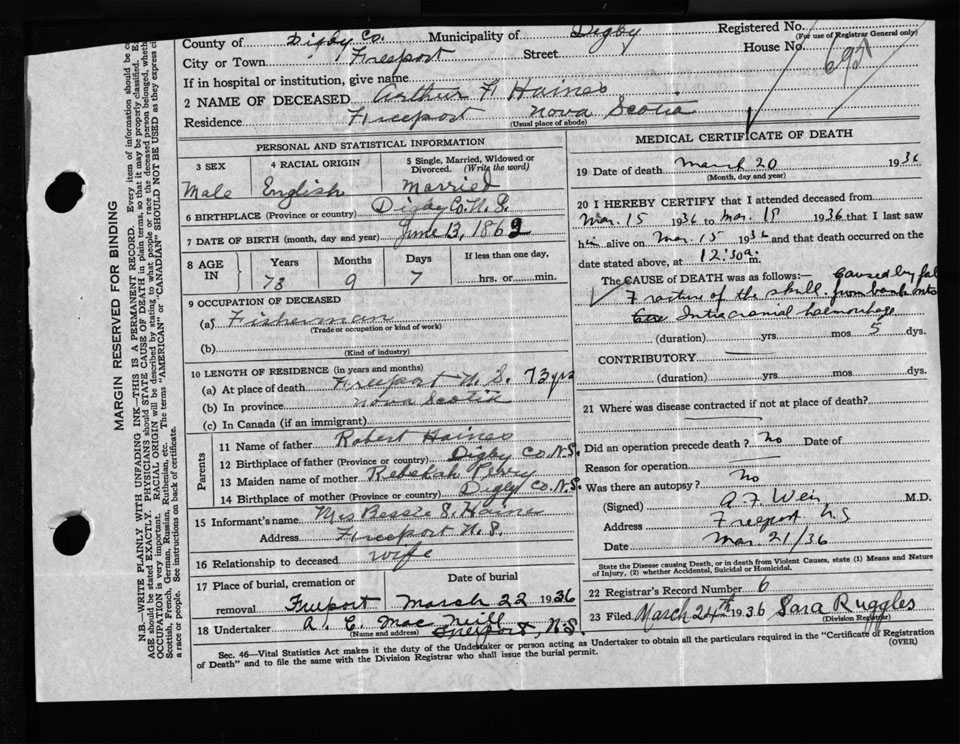 County of Digby Co. Municipality of Digby Registered No.
(For use of Registrar General only)
City or Town Freeport Street House No.
If in hospital or institution, give name
2 NAME OF DECEASED Arthur F Haines
Residence Freeport Nova Scotia
(Usual place of abode)
PERSONAL AND STATISTICAL INFORMATION
3 SEX 4 RACIAL ORIGIN 5 Single, Married, Widowed or Divorced. (Write the word)
Male English Married
6 BIRTHPLACE (Province or country) Digby Co. N.S.
7 DATE OF BIRTH (month, day and year) June 13, 1862
8 AGE IN Years Months Days If less than one day,
73 9 7 hrs. or min.
9 OCCUPATION OF DECEASED
(a) Fisherman
(Trade or occupation or kind of work)
(b)
(Kind of industry)
10 LENGTH OF RESIDENCE (in years and months)
(a) At place of death Freeport N.S. 73 yrs
(b) In province Nova Scotia
(c) In Canada (if an immigrant)
Parents
11 Name of father Robert Haines
12 Birthplace of father (Province or country) Digby Co. N.S.
13 Maiden name of mother Rebekah Perry
14 Birthplace of mother (Province or country) Digby Co. N.S.
15 Informant's name Mrs Bessie S. Haines
Address Freeport N.S.
16 Relationship to deceased wife
17 Place of burial, cremation or removal Date of burial
Freeport March 22 1936
18 Undertaker A. C. MacNeill
(Name and address) Freeport, N.S.
MEDICAL CERTIFICATE OF DEATH
19 Date of death March 20 1936
(Month, day and year)
20 I HEREBY CERTIFY that I attended deceased from
Mar. 15 1936 to Mar. 18 1936 that I last saw
him alive on Mar. 15 1936 and that death occurred on the
date stated above, at 12:30 a. m.
The CAUSE of DEATH was as follows:— Caused by fall
Fracture of the skull from bank onto
Intracranial haemorrhage
(duration) yrs. mos. 5 dys.
CONTRIBUTORY
(duration) yrs. mos. dys.
21 Where was disease contracted if not at place of death?
Did an operation precede death? No Date of
Reason for operation
Was there an autopsy? No
(Signed) A. F. Weir M.D.
Address Freeport NS
Date Mar. 21/36
State the Disease causing Death, or in death from Violent Causes, state (1) Means and Nature
of Injury, (2) whether Accidental, Suicidal or Homicidal.
22 Registrar's Record Number 6
23 Filed March 24th 1936 Sara Ruggles
(Division Registrar)
Sec. 46—Vital Statistics Act makes it the duty of the Undertaker or person acting as Undertaker to obtain all the particulars required in the "Certificate of Registration
of Death" and to file the same with the Division Registrar who shall issue the burial permit. (OVER)
MARGIN RESERVED FOR BINDING
N.B.—WRITE PLAINLY WITH UNFADING INK—THIS IS A PERMANENT RECORD. Every item of information should be
AGE should be stated EXACTLY. PHYSICIANS should STATE CAUSE OF DEATH in plain terms, so that it may be properly classified.
OCCUPATION is very important. RACIAL ORIGIN will be described by stating to what people or race the deceased person belonged,
Scottish, French, German, Russian, Ruthenian, etc. The terms "AMERICAN" or "CANADIAN" SHOULD NOT BE USED as they express
a race or people. See instructions on back of certificate.